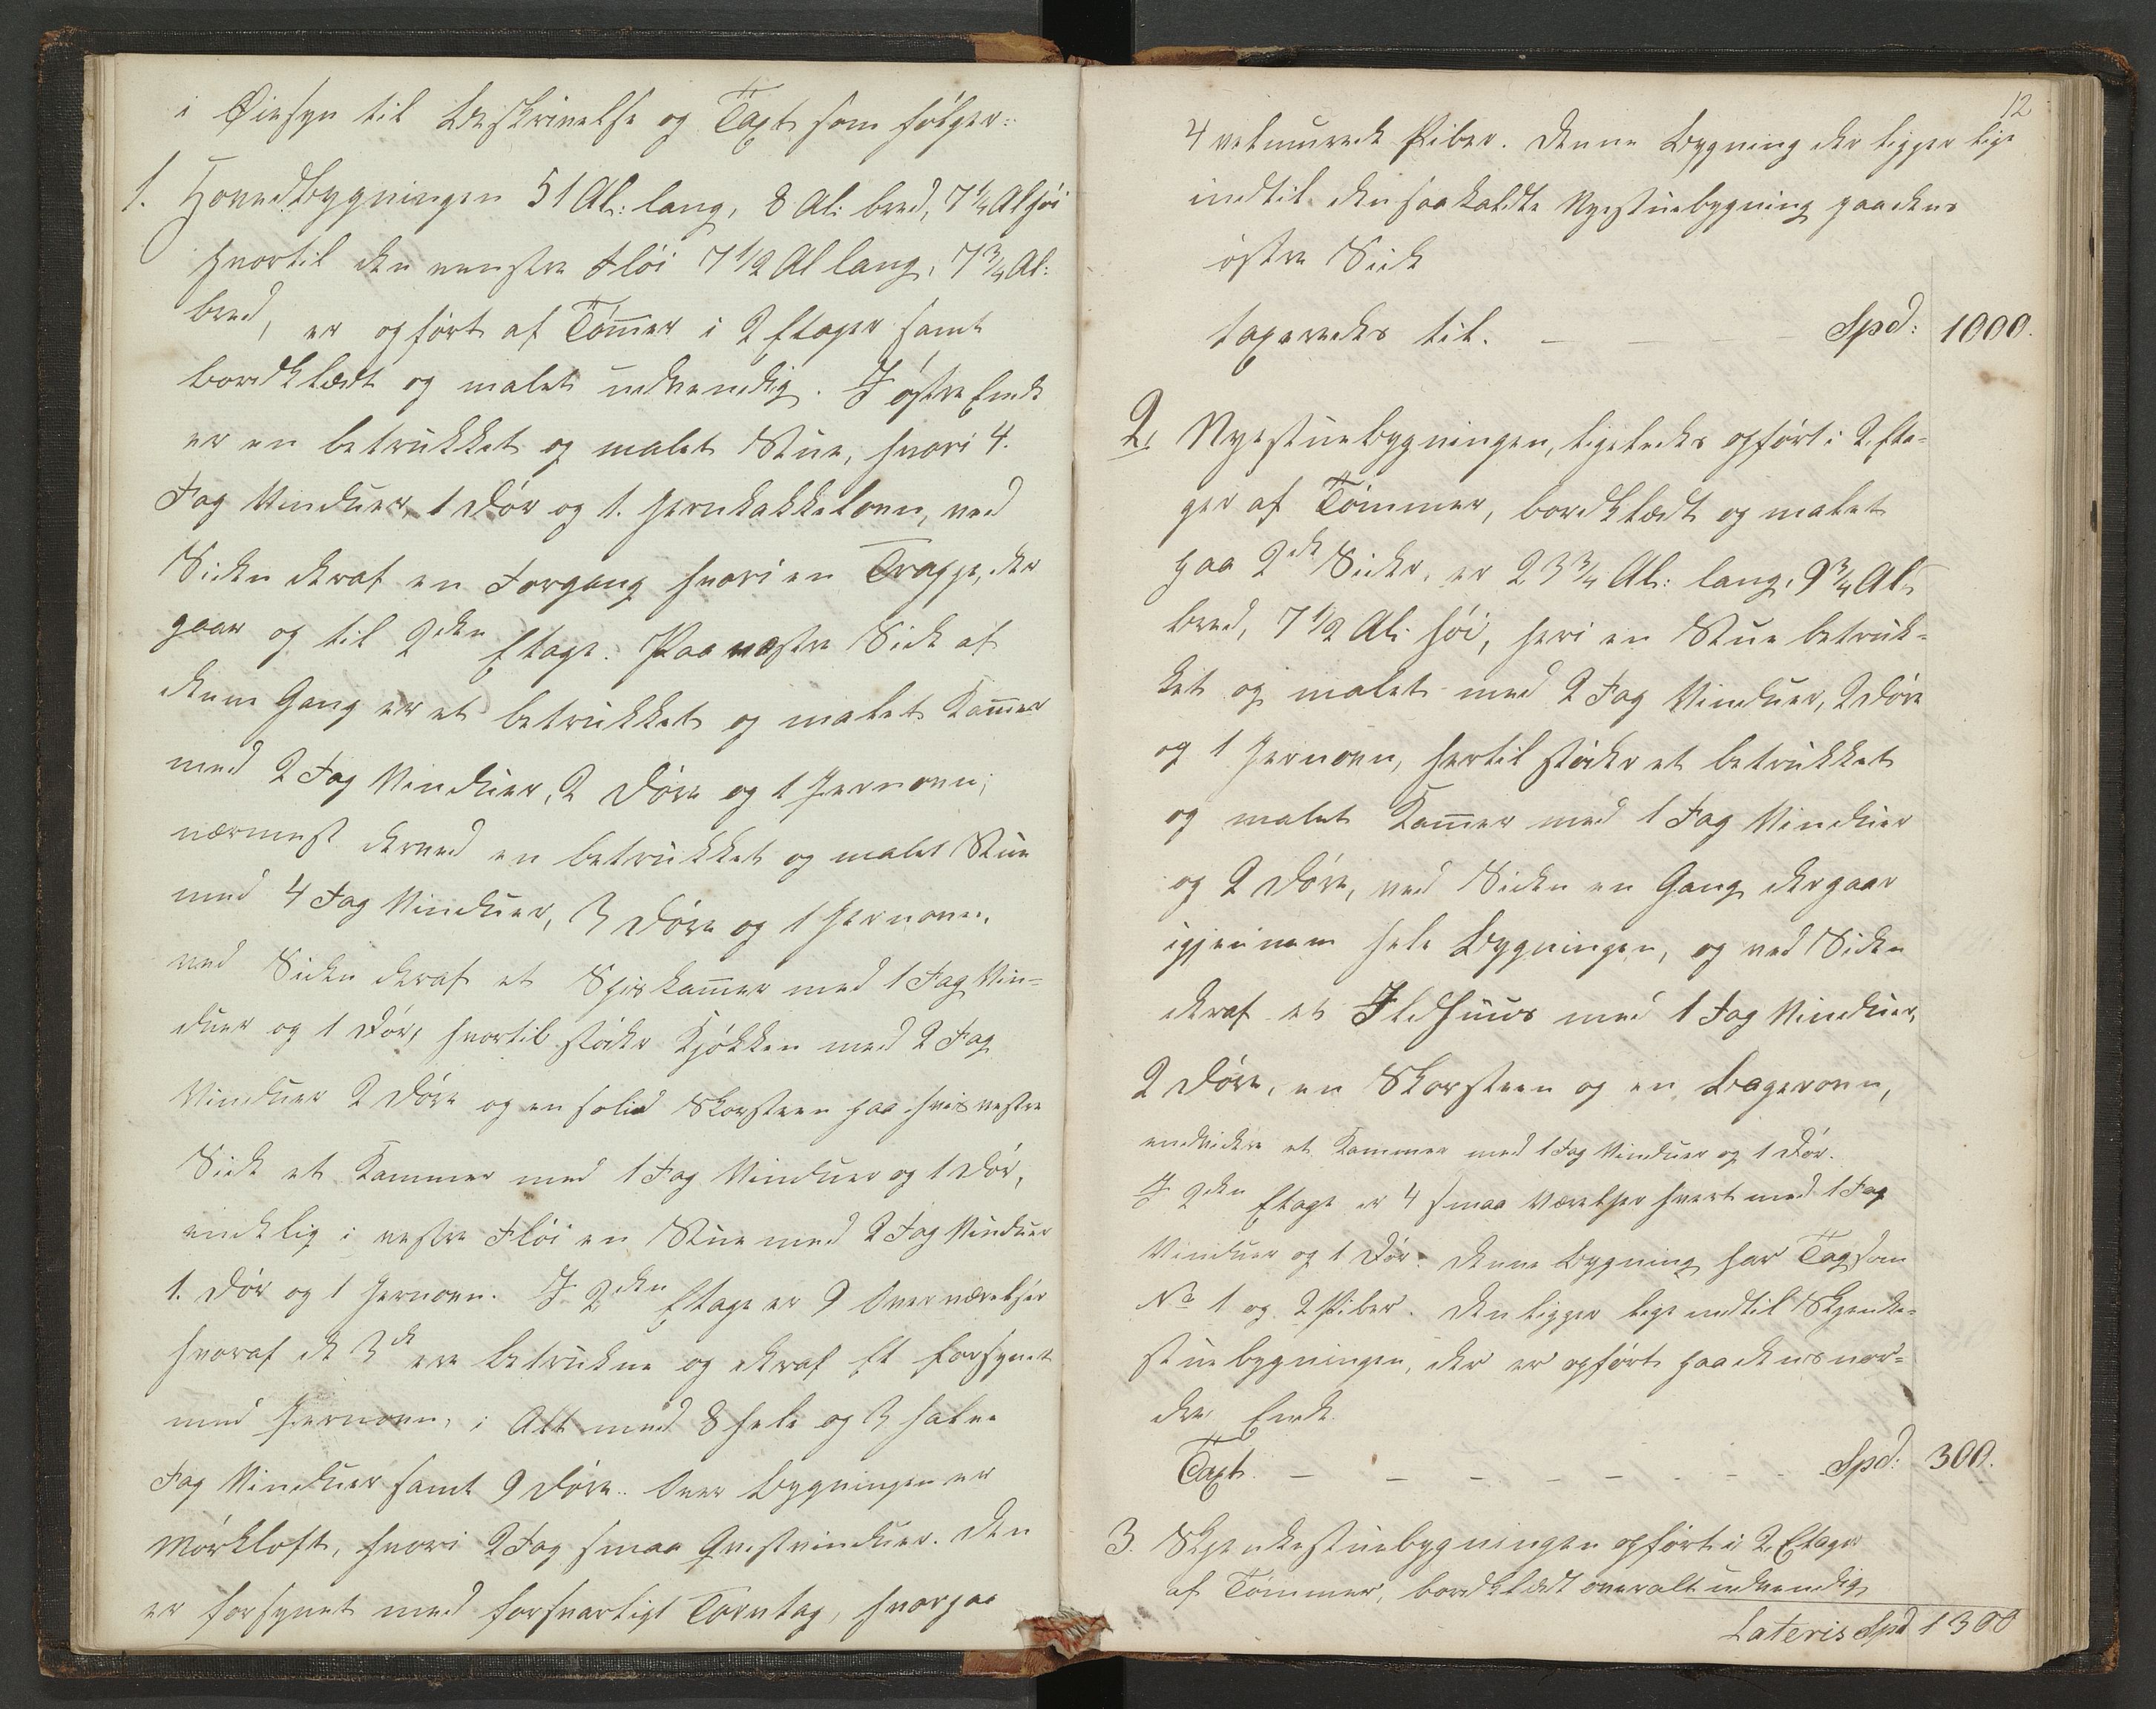 i Øiesyn til Beskrivelse og Taxt som følger:
1. Hovedbygningen 51 Al: lang, 8 Al: bred, 7 1/4 Al høi
hvortil den venstre Fløi 7 1/2 Al lang, 7 3/4 Al:
bred, er opført af Tømer i 2 Etager samt
bordklædt og malet udvendig. I østre Ende
er en betrukket og malet Stue, hvori 4.
Fag Vinduer, 1 Dør og 1. Jernkakkelovn, ved
Siden deraf en Forgang hvori en Trappe, der
gaar og til 2den Etage. Paa vestre Side af
denne Gang er et betrukket og malet Kamer
med 2 Fag Vinduer, 2 Døre og 1 Jernovn;
nærmest derved en betrukket og malet Stue
med 4 Fag Vinduer, 3 Døre og 1 Jernovn.
ved Siden deraf et Spiskamer med 1 Fag Vin-
duer og 1 Dør, hvortil støder Kjøkken med 2 Fag
Vinduer 2 Døre og en solid Skorsteen paa hvis vestre
Side et Kammer med 1 Fag Vinduer og 1 Dør,
endelig i vestre Fløi en Stue med 2 Fag Vinduer
1. Dør og 1 Jernovn. I 2den Etage er 9 Overværelser
hvoraf de 3de ere betrukne og deraf Et forsynet
med Jernovn, i Alt med 8 hele og 3 halve
Fag Vinduer samt 9 Døre. Over Bygningen er
Mørkloft, hvori 2 Fag smaa Qvistvinduer. Den
er forsynet med forsvarligt Torvtag, hvorpaa
12
4 velmurede Piber. Denne Bygning der ligger lige
indtil den saakaldte Nyestuebygning paa dens
østre Side
taxeredes til. — — — — Spd: 1000.
2. Nyestuebygningen, ligeledes opført i 2 Eta-
ger af Tømmer, bordklædt og malet
paa 2de Sider, er 23 3/4 Al: lang, 9 3/4 Al:
bred, 7 1/2 Al: høi, heri en Stue betruk-
ket og malet med 2 Fag Vinduer, 2 Døre
og 1 Jernovn, hertil støder et betrukket
og malet Kamer med 1 Fag Vinduer
og 2 Døre, ved Siden en Gang der gaar
igjennem hele Bygningen, og ved Siden
deraf et Ildhuus med 1 Fag Vinduer,
2 Døre, en Skorsteen og en Bagerovn,
endvidere et Kammer med 1 Fag Vinduer og 1 Dør.
I 2den Etage er 4 smaa Værelser hvert med 1 Fag
Vinduer og 1 Dør. Denne Bygning har Tag som
No 1 og 2 Piber. Den ligger lige indtil Skjenke-
stuebygningen, der er opført paa dens nor-
dre Ende.
Taxt. — — — — — — — Spd: 300.
3. Skjenkestuebygningen opført i 2 Etager
af Tømmer, bordklædt overalt udvendig
Lateris Spd 1300